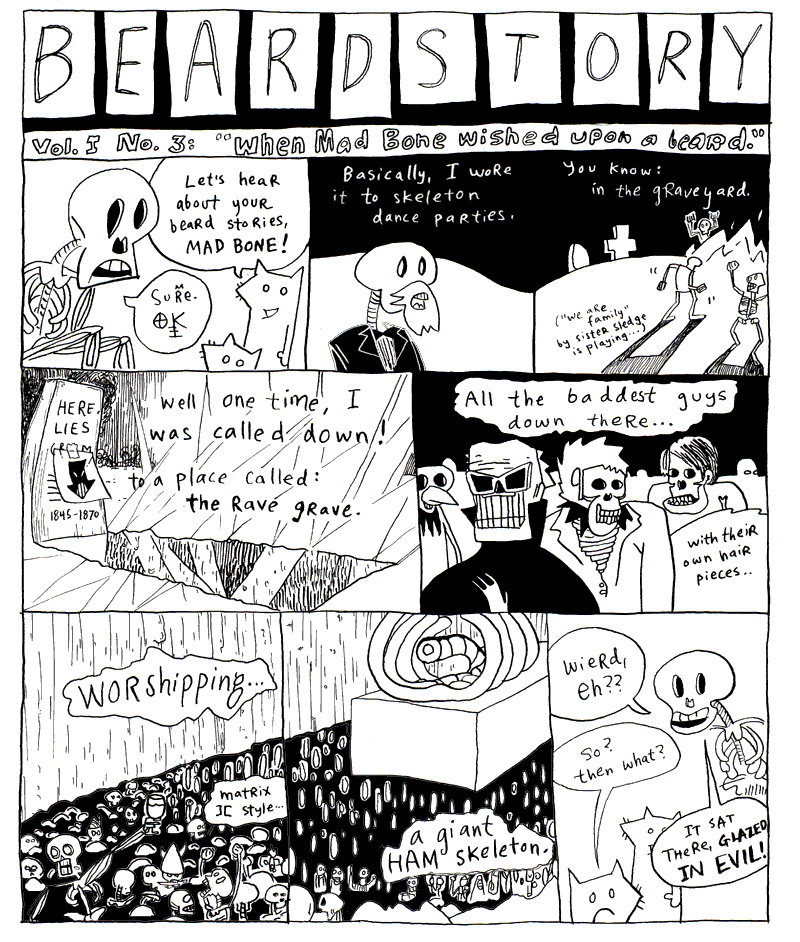 BEARDSTORY
Vol. I No. 3: "When Mad Bone wished upon a beard."
Let's hear
about your
beard stories,
MAD BONE!
Sure.
OK
Basically, I wore
it to skeleton
dance parties.
You know:
in the graveyard.
("We are
family"
by sister sledge
is playing...)
HERE
LIES
1845-1870
well one time, I
was called down!
to a place called:
the Rave grave.
All the baddest guys
down there...
with their
own hair
pieces..
WORshipping...
matrix
II style...
a giant
HAM skeleton.
wierd,
eh??
So?
then what?
IT SAT
THERE, GLAZED
IN EVIL!